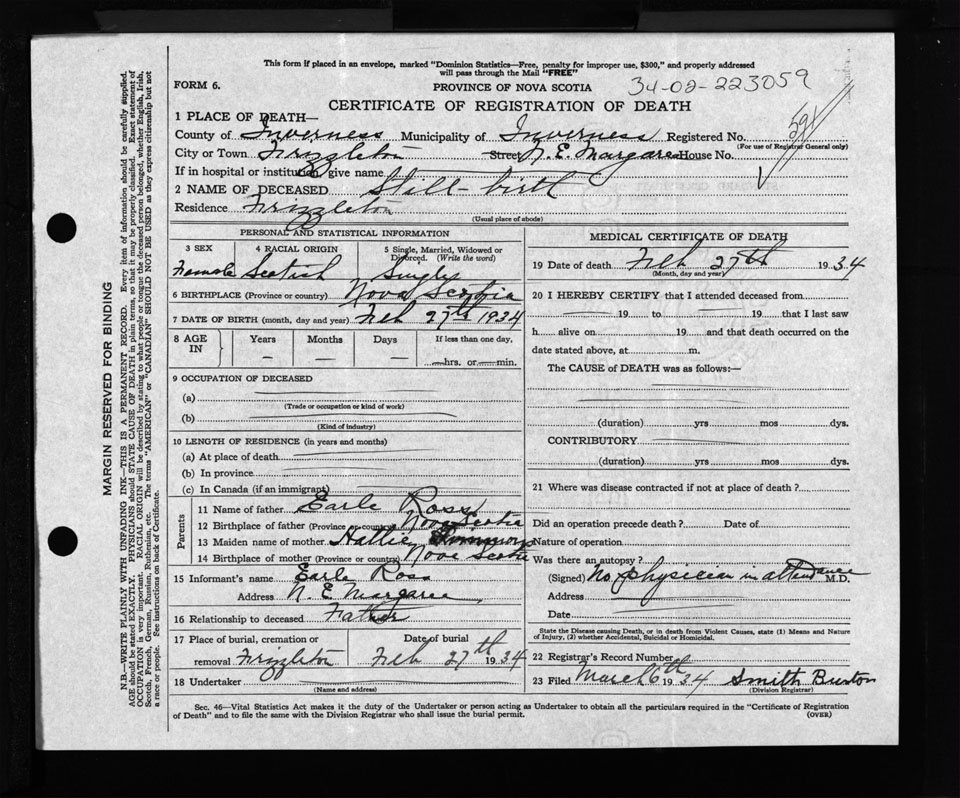 This form if placed in an envelope, marked "Dominion Statistics—Free, penalty for improper use, $300," and properly addressed
will pass through the Mail "FREE"
FORM 6.
PROVINCE OF NOVA SCOTIA
34-02-223059
CERTIFICATE OF REGISTRATION OF DEATH
1 PLACE OF DEATH—
County of Inverness Municipality of Inverness Registered No.
(For use of Registrar General only)
City or Town Frizzleton Street N. E. Margaree House No.
If in hospital or institution, give name
2 NAME OF DECEASED Still-birth
Residence Frizzleton
(Usual place of abode)
PERSONAL AND STATISTICAL INFORMATION
3 SEX 4 RACIAL ORIGIN 5 Single, Married, Widowed or Divorced. (Write the word)
Female Scotish Single
6 BIRTHPLACE (Province or country) Nova Scotia
7 DATE OF BIRTH (month, day and year) Feb 27th 1934
8 AGE IN Years Months Days If less than one day,
— — — —hrs. or—min.
9 OCCUPATION OF DECEASED
(a)
(Trade or occupation or kind of work)
(b)
(Kind of industry)
10 LENGTH OF RESIDENCE (in years and months)
(a) At place of death
(b) In province
(c) In Canada (if an immigrant)
Parents
11 Name of father Earle Ross
12 Birthplace of father (Province or country) Nova Scotia
13 Maiden name of mother Hattie
14 Birthplace of mother (Province or country) Nova Scotia
15 Informant's name Earle Ross
Address N. E. Margaree
16 Relationship to deceased Father
17 Place of burial, cremation or removal Frizzleton Date of burial Feb 27th 1934
18 Undertaker
(Name and address)
MEDICAL CERTIFICATE OF DEATH
19 Date of death Feb 27th 1934
(Month, day and year)
20 I HEREBY CERTIFY that I attended deceased from
19 to 19 that I last saw
h alive on 19 and that death occurred on the
date stated above, at m.
The CAUSE of DEATH was as follows:—
(duration) yrs mos dys.
CONTRIBUTORY
(duration) yrs mos dys.
21 Where was disease contracted if not at place of death?
Did an operation precede death? Date of
Nature of operation
Was there an autopsy?
(Signed) No physician in attendance M.D.
Address
Date
State the Disease causing Death, or in death from Violent Causes, state (1) Means and Nature
of Injury, (2) whether Accidental, Suicidal or Homicidal.
22 Registrar's Record Number
23 Filed March 6th 1934 Smith Burton
(Division Registrar)
Sec. 46—Vital Statistics Act makes it the duty of the Undertaker or person acting as Undertaker to obtain all the particulars required in the "Certificate of Registration
of Death" and to file the same with the Division Registrar who shall issue the burial permit.
(OVER)
MARGIN RESERVED FOR BINDING
N.B.—WRITE PLAINLY WITH UNFADING INK—THIS IS A PERMANENT RECORD. Every item of information should be carefully supplied.
AGE should be stated EXACTLY. PHYSICIANS should STATE CAUSE OF DEATH in plain terms, so that it may be properly classified. Exact statement of
OCCUPATION is very important. RACIAL ORIGIN will be described by stating to what people or tongue the deceased person belonged, whether English, Irish,
Scotch, French, German, Russian, Ruthenian, etc. The terms "AMERICAN" or "CANADIAN" SHOULD NOT BE USED as they express citizenship but not
a race or people. See instructions on back of Certificate.